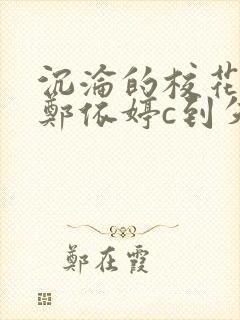 沉淪的校花
鄭依婷c到
鄭在霞